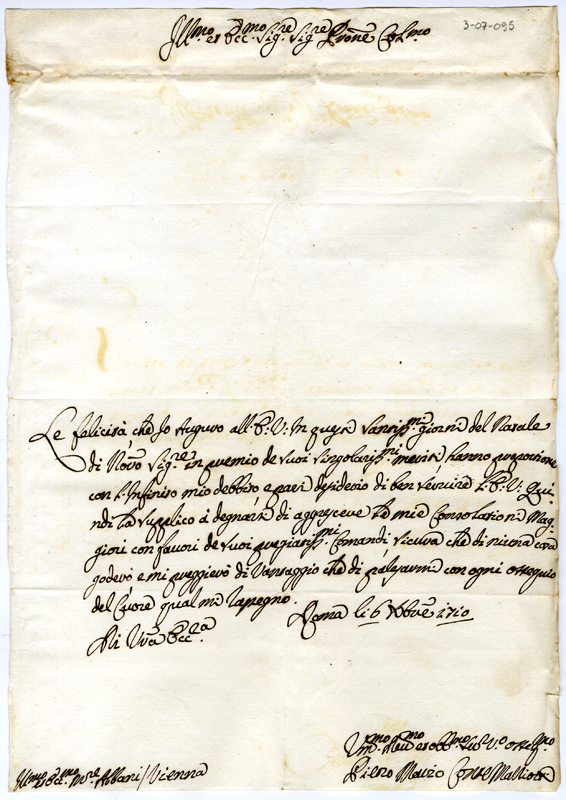 3-07-095
Ill.mo et Ecc.mo Sig.re Sig.re Prone Col.mo
Le felicità, che Io auguro all'E.V. In questi santiss.mi giorni del Natale
di Nostro Sig.re in premio de suoi singolariss.mi meriti hanno proporzione
con l'Infinito mio debbito e pari desiderio di ben servire l'E.V. Qui
ndi la supplico à degnarsi di aggrescere le mie Consolationi Mag
giori con favori de suoi pregiatiss.mi Comandi sicura che di niuna cosa
goderò e mi preggierò di vantaggio che di palesarmi con ogni ossequio
del Cuore qual mi rassegno.
Di Vra Ecc.za Roma li 6 Xbre 1710
Um.mo
Ill.mo et Ecc.mo Albani / Vienna Piero Conte